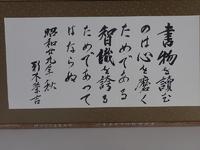 書物を讀む
のは心を磨く
ためである
智識を誇る
ためであって
はならぬ
昭和廿九年秋